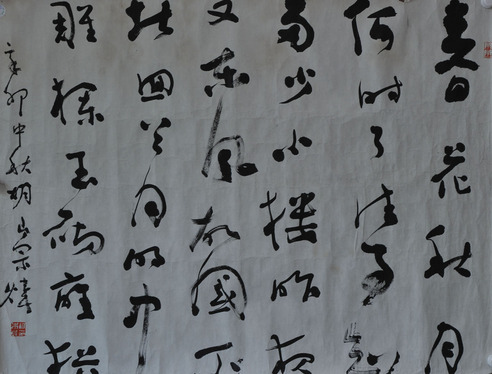 春花秋月
何时了往事知
多少小楼昨夜
又东风故國不
堪回首月明中
雕栏玉砌應犹
辛卯中秋